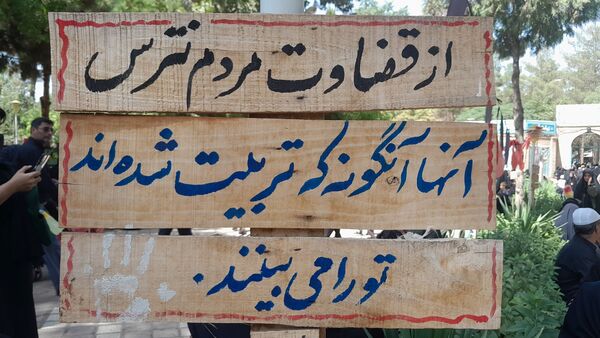 از قضاوت مردم نترس
آنها آنگونه که تربیت شده اند
تو را می بینند.